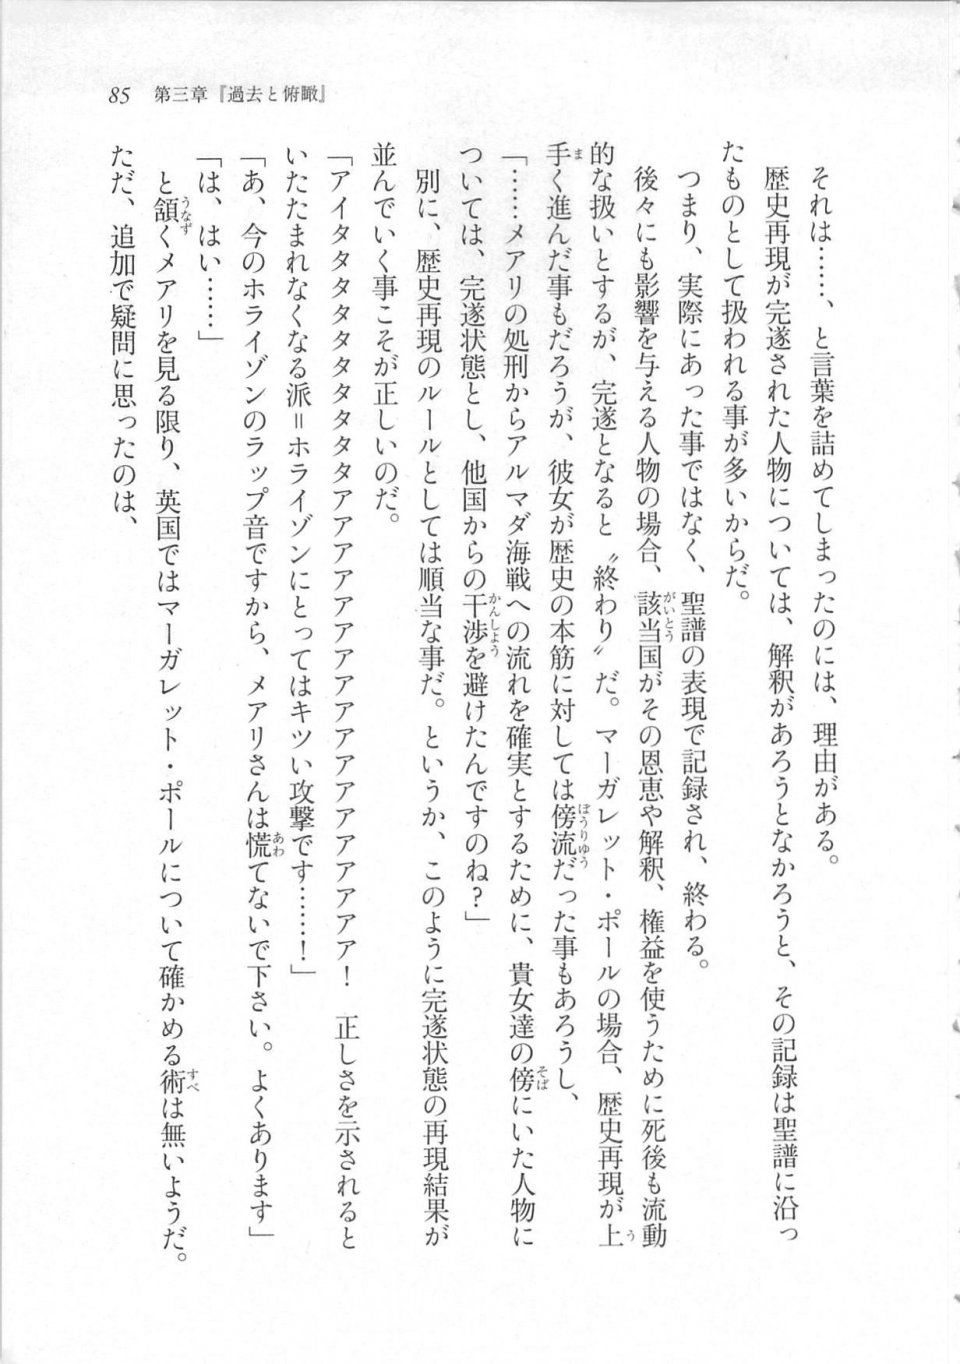 85　第三章『過去と俯瞰』
　それは……、と言葉を詰めてしまったのには、理由がある。
　歴史再現が完遂された人物については、解釈があろうとなかろうと、その記録は聖譜に沿っ
たものとして扱われる事が多いからだ。
　つまり、実際にあった事ではなく、聖譜の表現で記録され、終わる。
　後々にも影響を与える人物の場合、該当国がその恩恵や解釈、権益を使うために死後も流動
的な扱いとするが、完遂となると〝終わり〟だ。マーガレット・ポールの場合、歴史再現が上
手く進んだ事もだろうが、彼女が歴史の本筋に対しては傍流だった事もあろうし、
「……メアリの処刑からアルマダ海戦への流れを確実とするために、貴女達の傍にいた人物に
ついては、完遂状態とし、他国からの干渉を避けたんですのね？」
　別に、歴史再現のルールとしては順当な事だ。というか、このように完遂状態の再現結果が
並んでいく事こそが正しいのだ。
「アイタタタタタタタタタアアアアアアアアアアアアアア！　正しさを示されると
いたたまれなくなる派＝ホライゾンにとってはキツい攻撃です……！」
「あ、今のホライゾンのラップ音ですから、メアリさんは慌てないで下さい。よくあります」
「は、はい……」
　と頷くメアリを見る限り、英国ではマーガレット・ポールについて確かめる術は無いようだ。
ただ、追加で疑問に思ったのは、